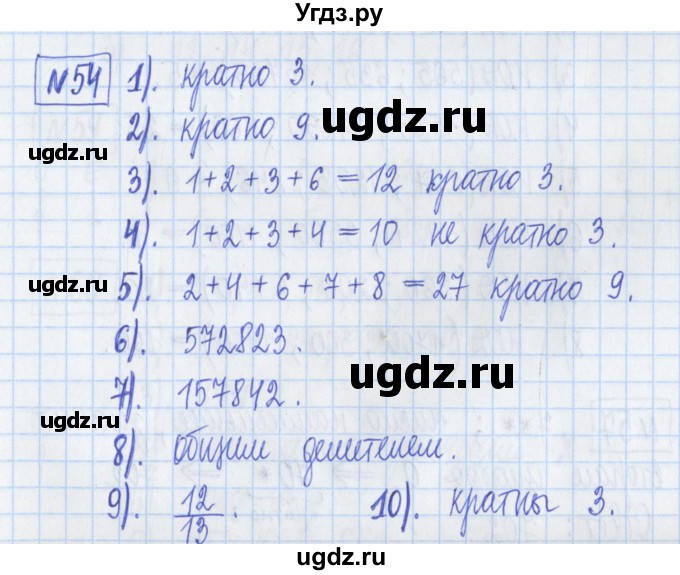 Угдз.ру
№54 1). кратно 3.
ugdz.ru
2). кратно 9.
ugdz.ru
3). 1+2+3+6=12 кратно 3.
4). 1+2+3+4=10 не кратно 3.
ugdz.ru
5). 2+4+6+7+8=27 кратно 9.
6). 572823.
ugdz.ru
7). 157842.
ugdz.ru
8). общим делителем.
9). 12/13. 10). кратны 3.
ugdz.ru